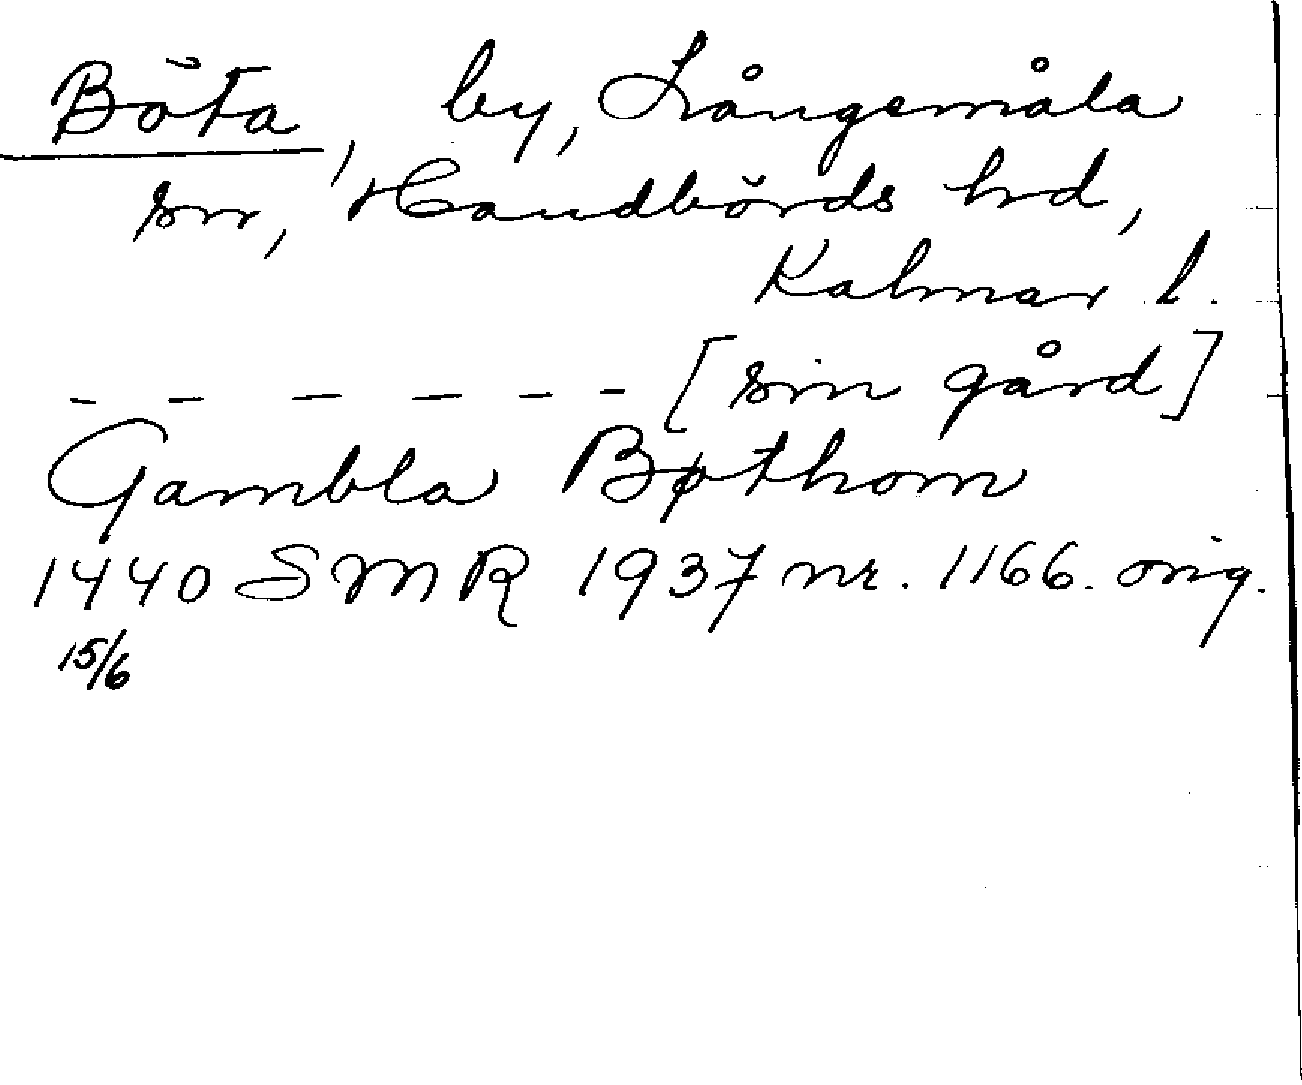 Böta, by, Långemåla
sn, Handbörds hd,
Kalmar l.
- - - - - - [sin gård]
Gambla Bøthom
1440 SMR 1937 nr. 1166. orig.
15/6